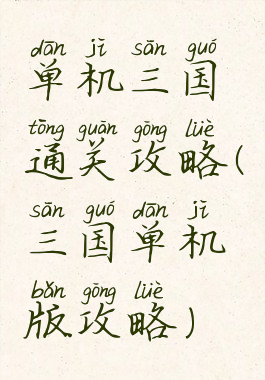 dān jī sān guó
单机三国
tōng guān gōng lüè
通关攻略(
sān guó dān jī
三国单机
bǎn gōng lüè
版攻略)